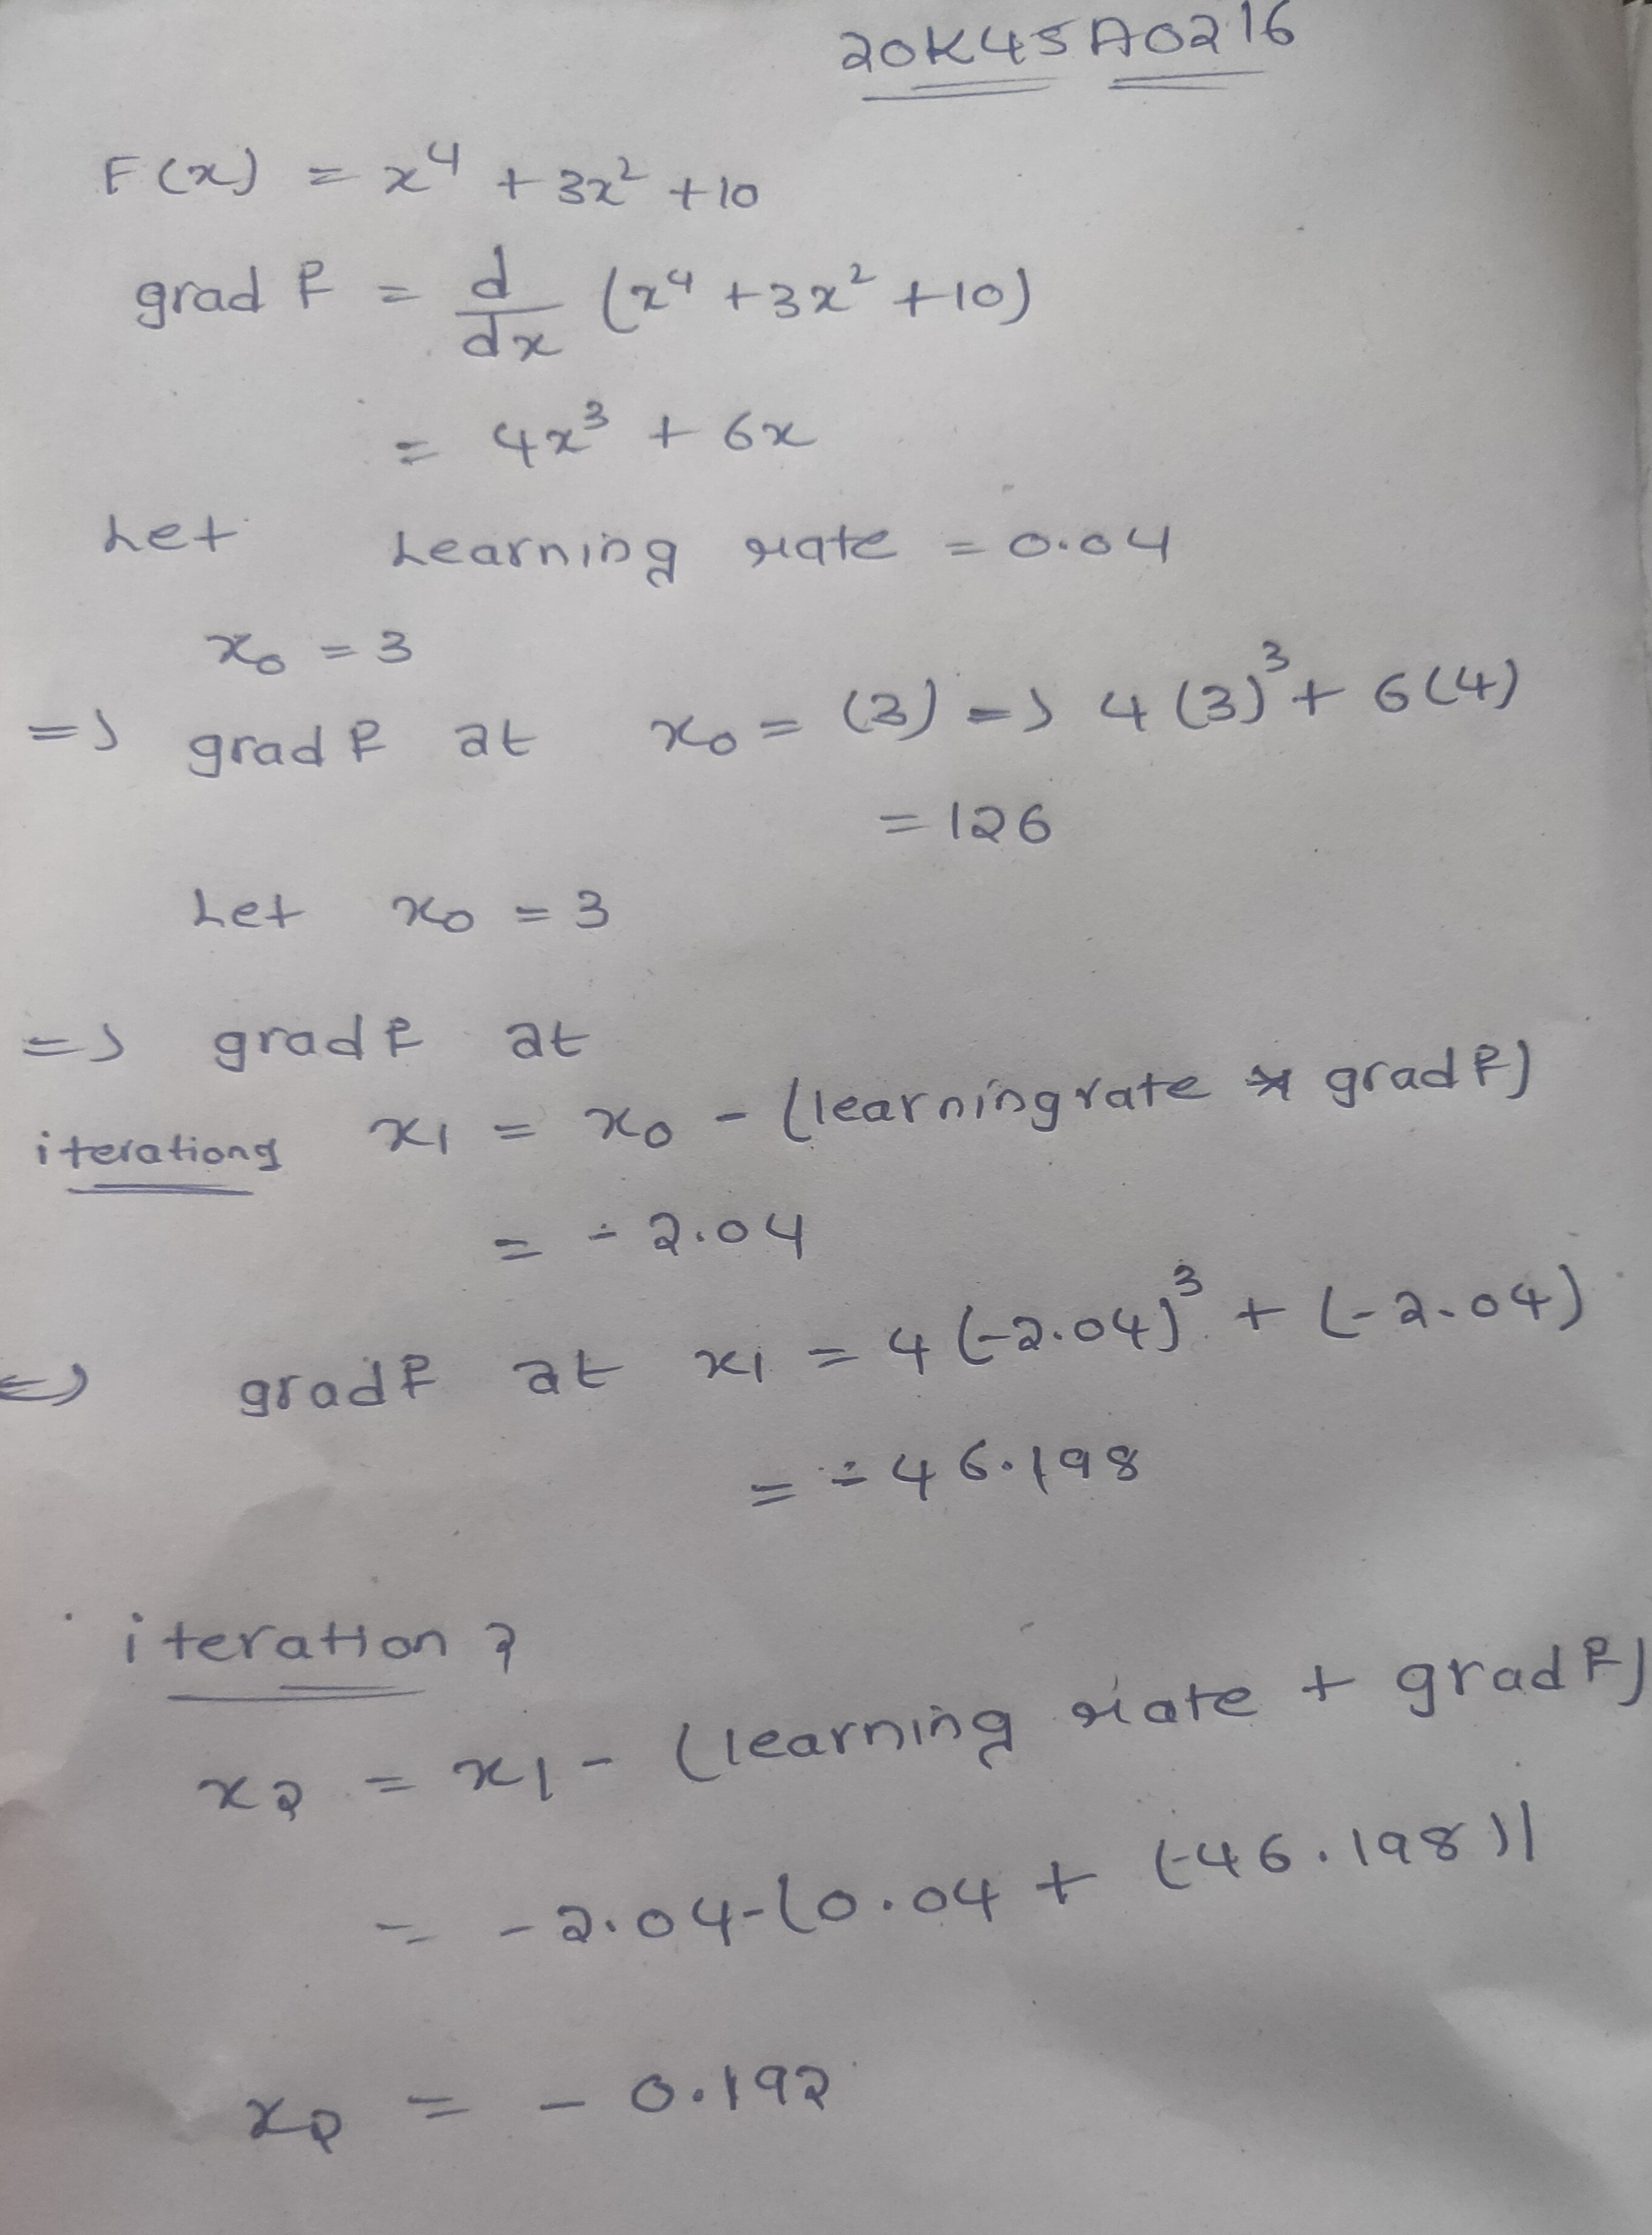 20K45A0216
F(x) = x⁴ + 3x² + 10
grad f = d/dx (x⁴ + 3x² + 10)
= 4x³ + 6x
Let Learning rate = 0.04
x₀ = 3
=> grad f at x₀ = (3) => 4(3)³ + 6(4)
= 126
Let x₀ = 3
=> grad f at
iteration x₁ = x₀ - (learning rate * grad f)
= - 2.04
=> grad f at x₁ = 4(-2.04)³ + (-2.04)
= - 46.198
iteration 2
x₂ = x₁ - (learning rate + grad f)
= - 2.04 - (0.04 + (-46.198))
x₂ = - 0.192